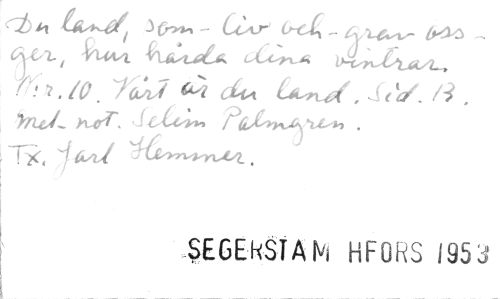 Du land, som - liv och - grav oss -
ger, hur hårda dina vintrar.
N:r. 10. Vårt är du land. Sid. 13.
Met. not. Selim Palmgren.
Tx. Jarl Hemmer.
SEGERSTAM HFORS 1953